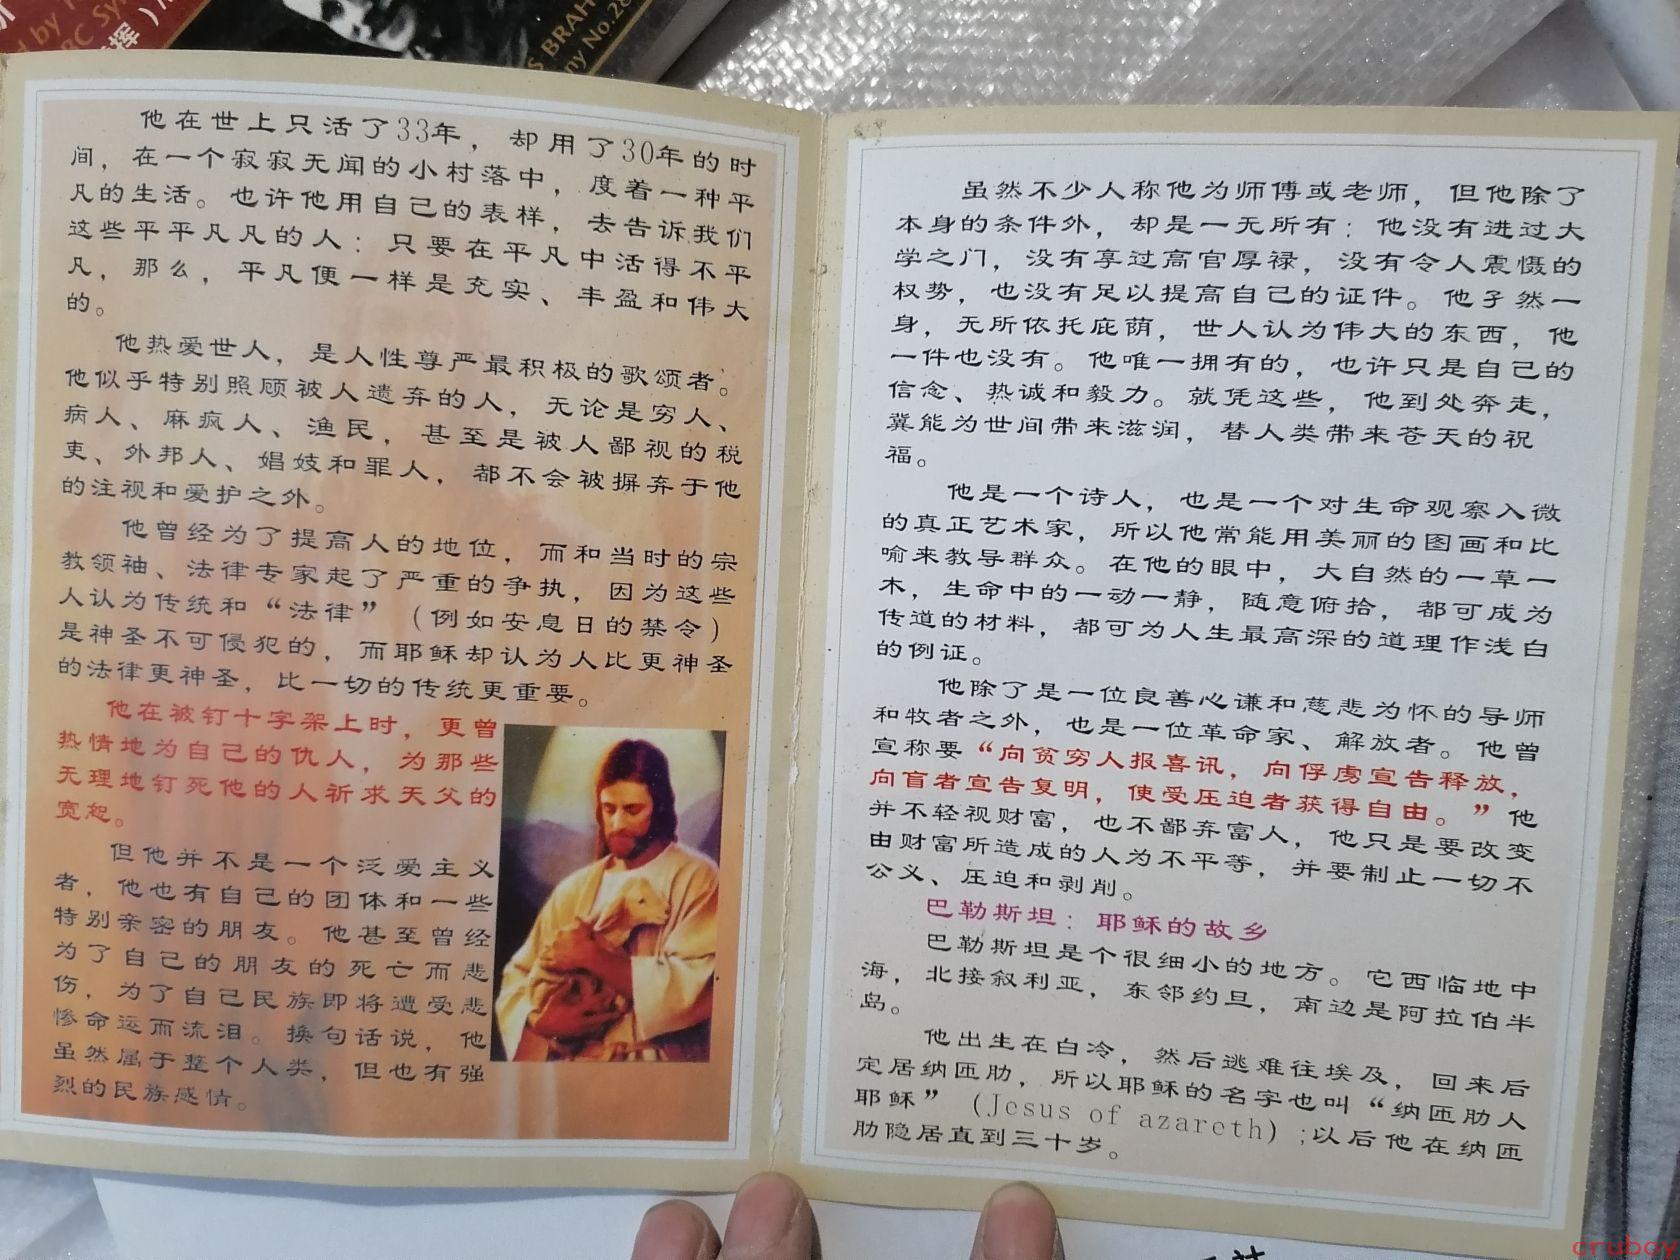 挥）
S BRAH
ny No.28
他在世上只活了33年，却用了30年的时
间，在一个寂寂无闻的小村落中，度着一种平
凡的生活。也许他用自己的表样，去告诉我们
这些平平凡凡的人：只要在平凡中活得不平
凡，那么，平凡便一样是充实、丰盈和伟大
的。
他热爱世人，是人性尊严最积极的歌颂者。
他似乎特别照顾被人遗弃的人，无论是穷人、
病人、麻疯人、渔民，甚至是被人鄙视的税
吏、外邦人、娼妓和罪人，都不会被摒弃于他
的注视和爱护之外。
他曾经为了提高人的地位，而和当时的宗
教领袖、法律专家起了严重的争执，因为这些
人认为传统和“法律”（例如安息日的禁令）
是神圣不可侵犯的，而耶稣却认为人比更神圣
的法律更神圣，比一切的传统更重要。
他在被钉十字架上时，更曾
热情地为自己的仇人，为那些
无理地钉死他的人祈求天父的
宽恕。
但他并不是一个泛爱主义
者，他也有自己的团体和一些
特别亲密的朋友。他甚至曾经
为了自己的朋友的死亡而悲
伤，为了自己民族即将遭受悲
惨命运而流泪。换句话说，他
虽然属于整个人类，但也有强
烈的民族感情。
虽然不少人称他为师傅或老师，但他除了
本身的条件外，却是一无所有；他没有进过大
学之门，没有享过高官厚禄，没有令人震慑的
权势，也没有足以提高自己的证件。他孑然一
身，无所依托庇荫，世人认为伟大的东西，他
一件也没有。他唯一拥有的，也许只是自己的
信念、热诚和毅力。就凭这些，他到处奔走，
冀能为世间带来滋润，替人类带来苍天的祝
福。
他是一个诗人，也是一个对生命观察入微
的真正艺术家，所以他常能用美丽的图画和比
喻来教导群众。在他的眼中，大自然的一草一
木，生命中的一动一静，随意俯拾，都可成为
传道的材料，都可为人生最高深的道理作浅白
的例证。
他除了是一位良善心谦和慈悲为怀的导师
和牧者之外，也是一位革命家、解放者。他曾
宣称要“向贫穷人报喜讯，向俘虏宣告释放，
向盲者宣告复明，使受压迫者获得自由。”他
并不轻视财富，也不鄙弃富人，他只是要改变
由财富所造成的人为不平等，并要制止一切不
公义、压迫和剥削。
巴勒斯坦：耶稣的故乡
巴勒斯坦是个很细小的地方。它西临地中
海，北接叙利亚，东邻约旦，南边是阿拉伯半
岛。
他出生在白冷，然后逃难往埃及，回来后
定居纳匝肋，所以耶稣的名字也叫“纳匝肋人
耶稣”（Jesus of azareth）;以后他在纳匝
肋隐居直到三十岁。
cruboy